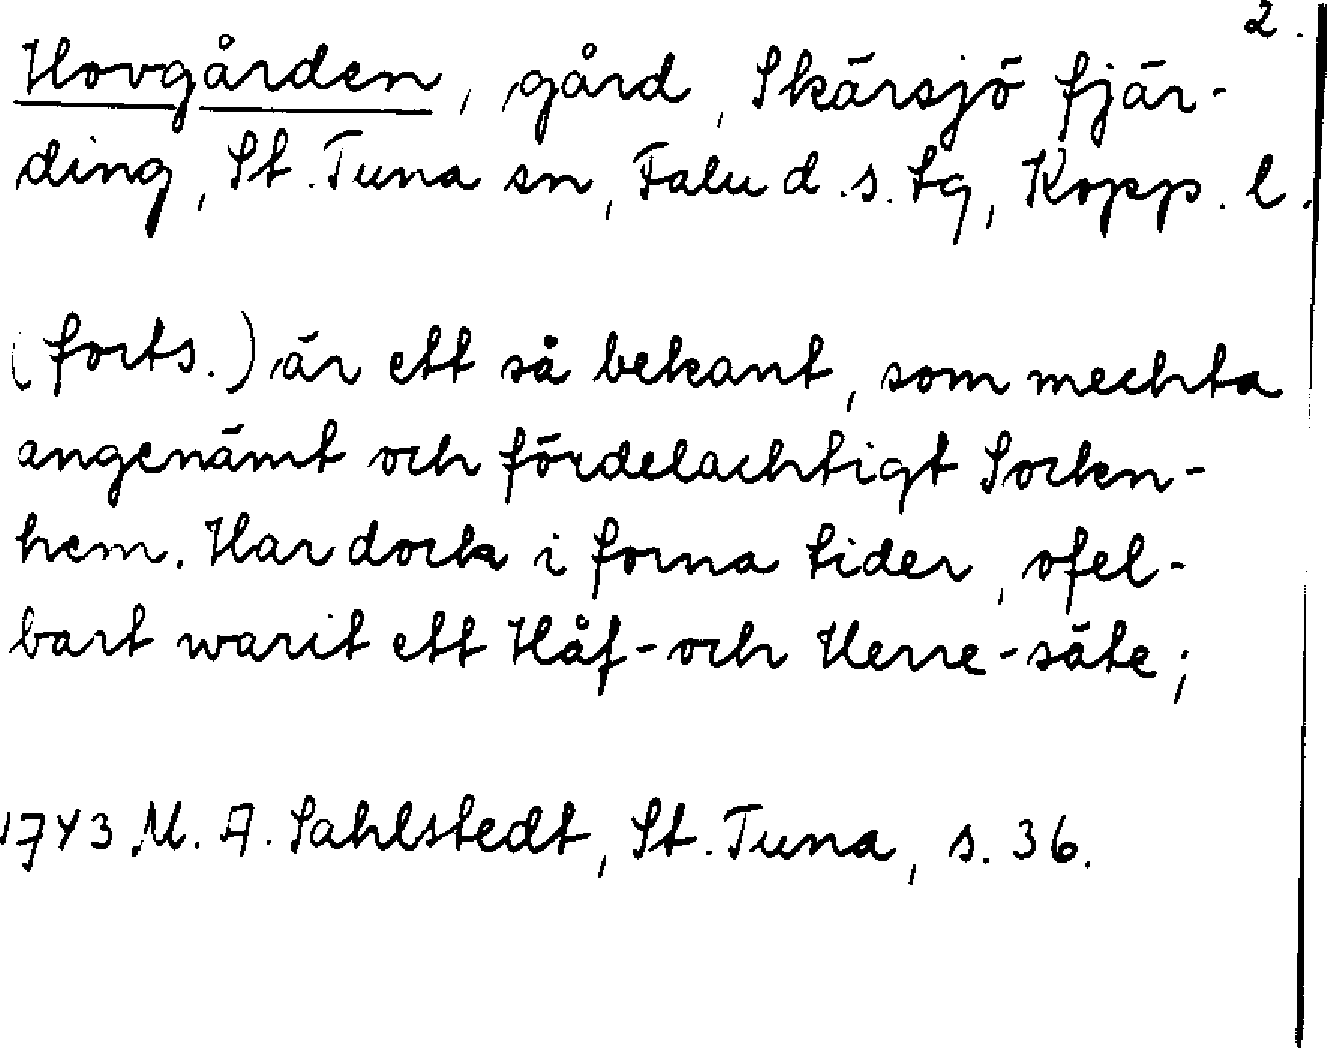 2.
Hovgården, gård, Skärsjö fjär-
ding, St. Tuna sn, Falu d.s. tg, Kopp. l.
(forts.) är ett så bekant, som mechta
angenämt och fördelachtigt Sockn-
hem. Har dock i forna tider, ofel-
bart warit ett Håf- och Herre-säte;
1743 M. A. Sahlstedt, St. Tuna, s. 36.